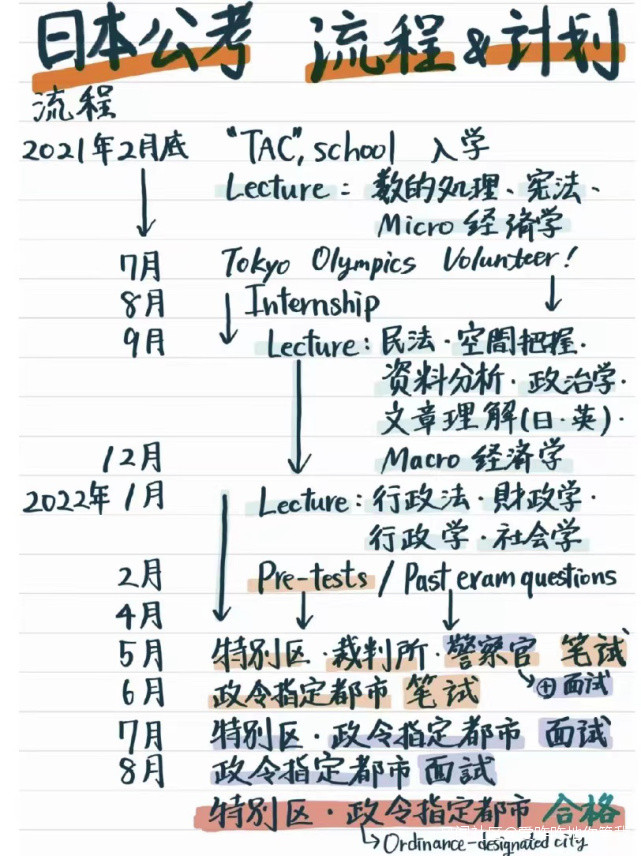 日本公考 流程&计划
流程
2021年2月底 "TAC", school 入学
Lecture: 数的处理、宪法、
Micro 経済学
7月 Tokyo Olympics Volunteer!
8月 Internship
9月 Lecture: 民法・空間把握・
资料分析・政治学・
文章理解(日・英)・
12月 Macro 経済学
2022年1月 Lecture: 行政法・財政学・
行政学・社会学
2月 Pre-tests / Past exam questions
4月
5月 特别区・裁判所・警察官 笔试
⊕面试
6月 政令指定都市 笔试
7月 特别区・政令指定都市 面试
8月 政令指定都市 面試
特别区・政令指定都市 合格
Ordinance-designated city